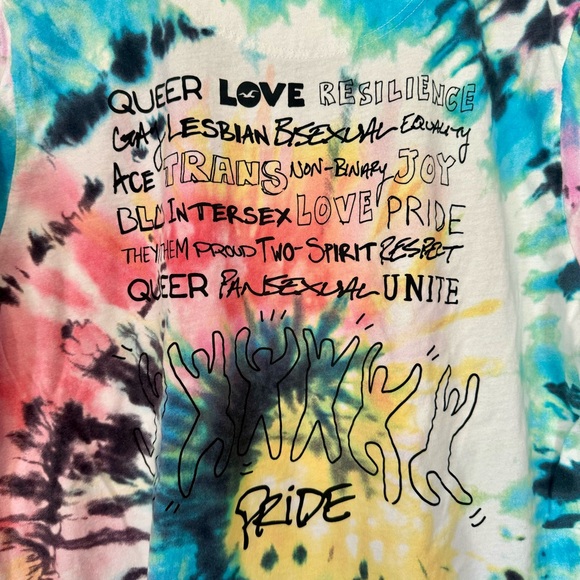 QUEER LOVE RESILIENCE
GAY LESBIAN BISEXUAL EQUALITY
ACE TRANS NON-BINARY JOY
INTERSEX LOVE PRIDE
THEY THEM PROUD TWO-SPIRIT RESPECT
QUEER PANSEXUAL UNITE
PRIDE